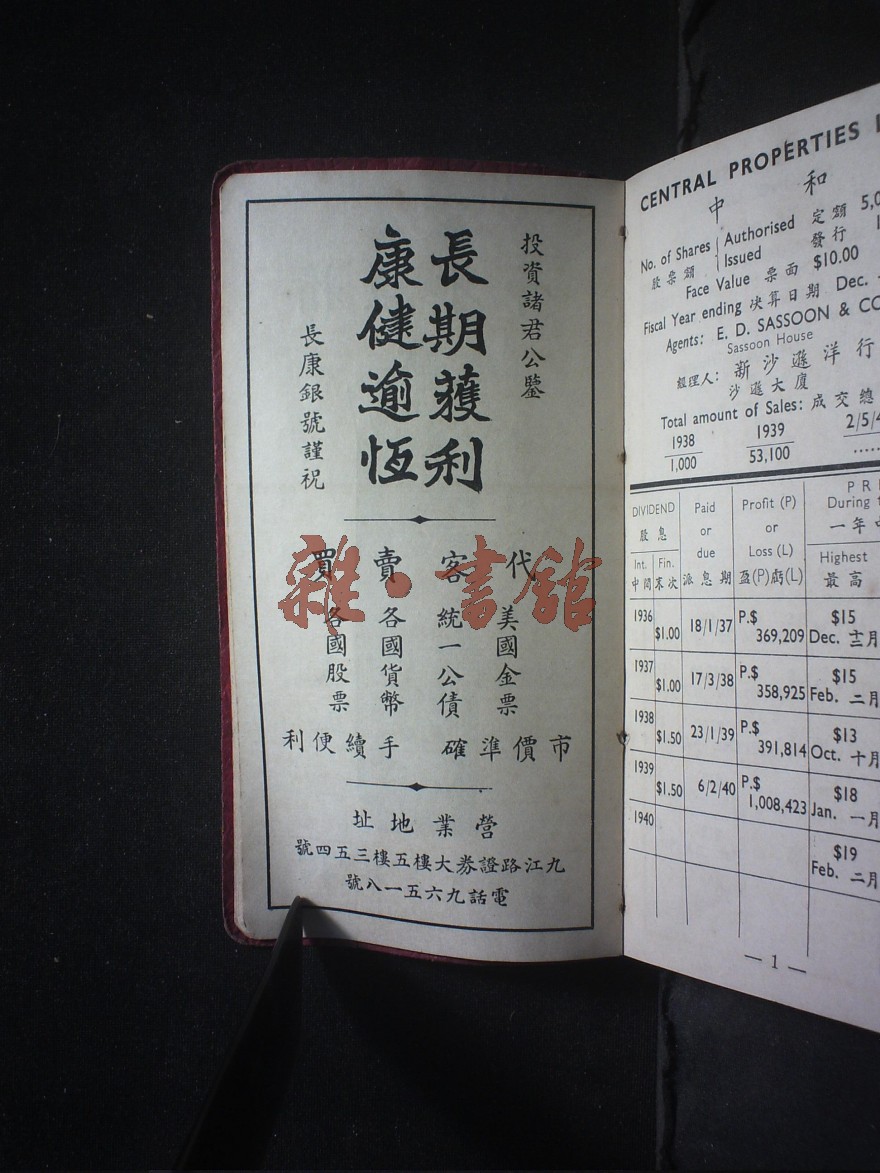 投資諸君公鑒
長期獲利
康健逾恆
長康銀號謹祝
代客賣買
美國金票
統一公債
各國貨幣
各國股票
市價準確 手續便利
營業地址
九江路證券大樓五樓三五四號
電話九六五一八號
雜·書館
CENTRAL PROPERTIES
中和
No. of Shares Authorised 定額 5,0
股票額 Issued 發行 1
Face Value 票面 $10.00
Fiscal Year ending 決算日期 Dec.
Agents: E. D. SASSOON & CO
Sassoon House
經理人: 新沙遜洋行
沙遜大廈
Total amount of Sales: 成交總
1938 1939 2/5/4
1,000 53,100 .....
DIVIDEND Paid Profit (P) PRI
股息 or or During t
due Loss (L) 一年中
Int. Fin. Highest
中間 末次 派息期 盈(P)虧(L) 最高
1936 $1.00 18/1/37 P.$ 369,209 $15 Dec. 十二月
1937 $1.00 17/3/38 P.$ 358,925 $15 Feb. 二月
1938 $1.50 23/1/39 P.$ 391,814 $13 Oct. 十月
1939 $1.50 6/2/40 P.$ 1,008,423 $18 Jan. 一月
1940 $19 Feb. 二月
— 1 —